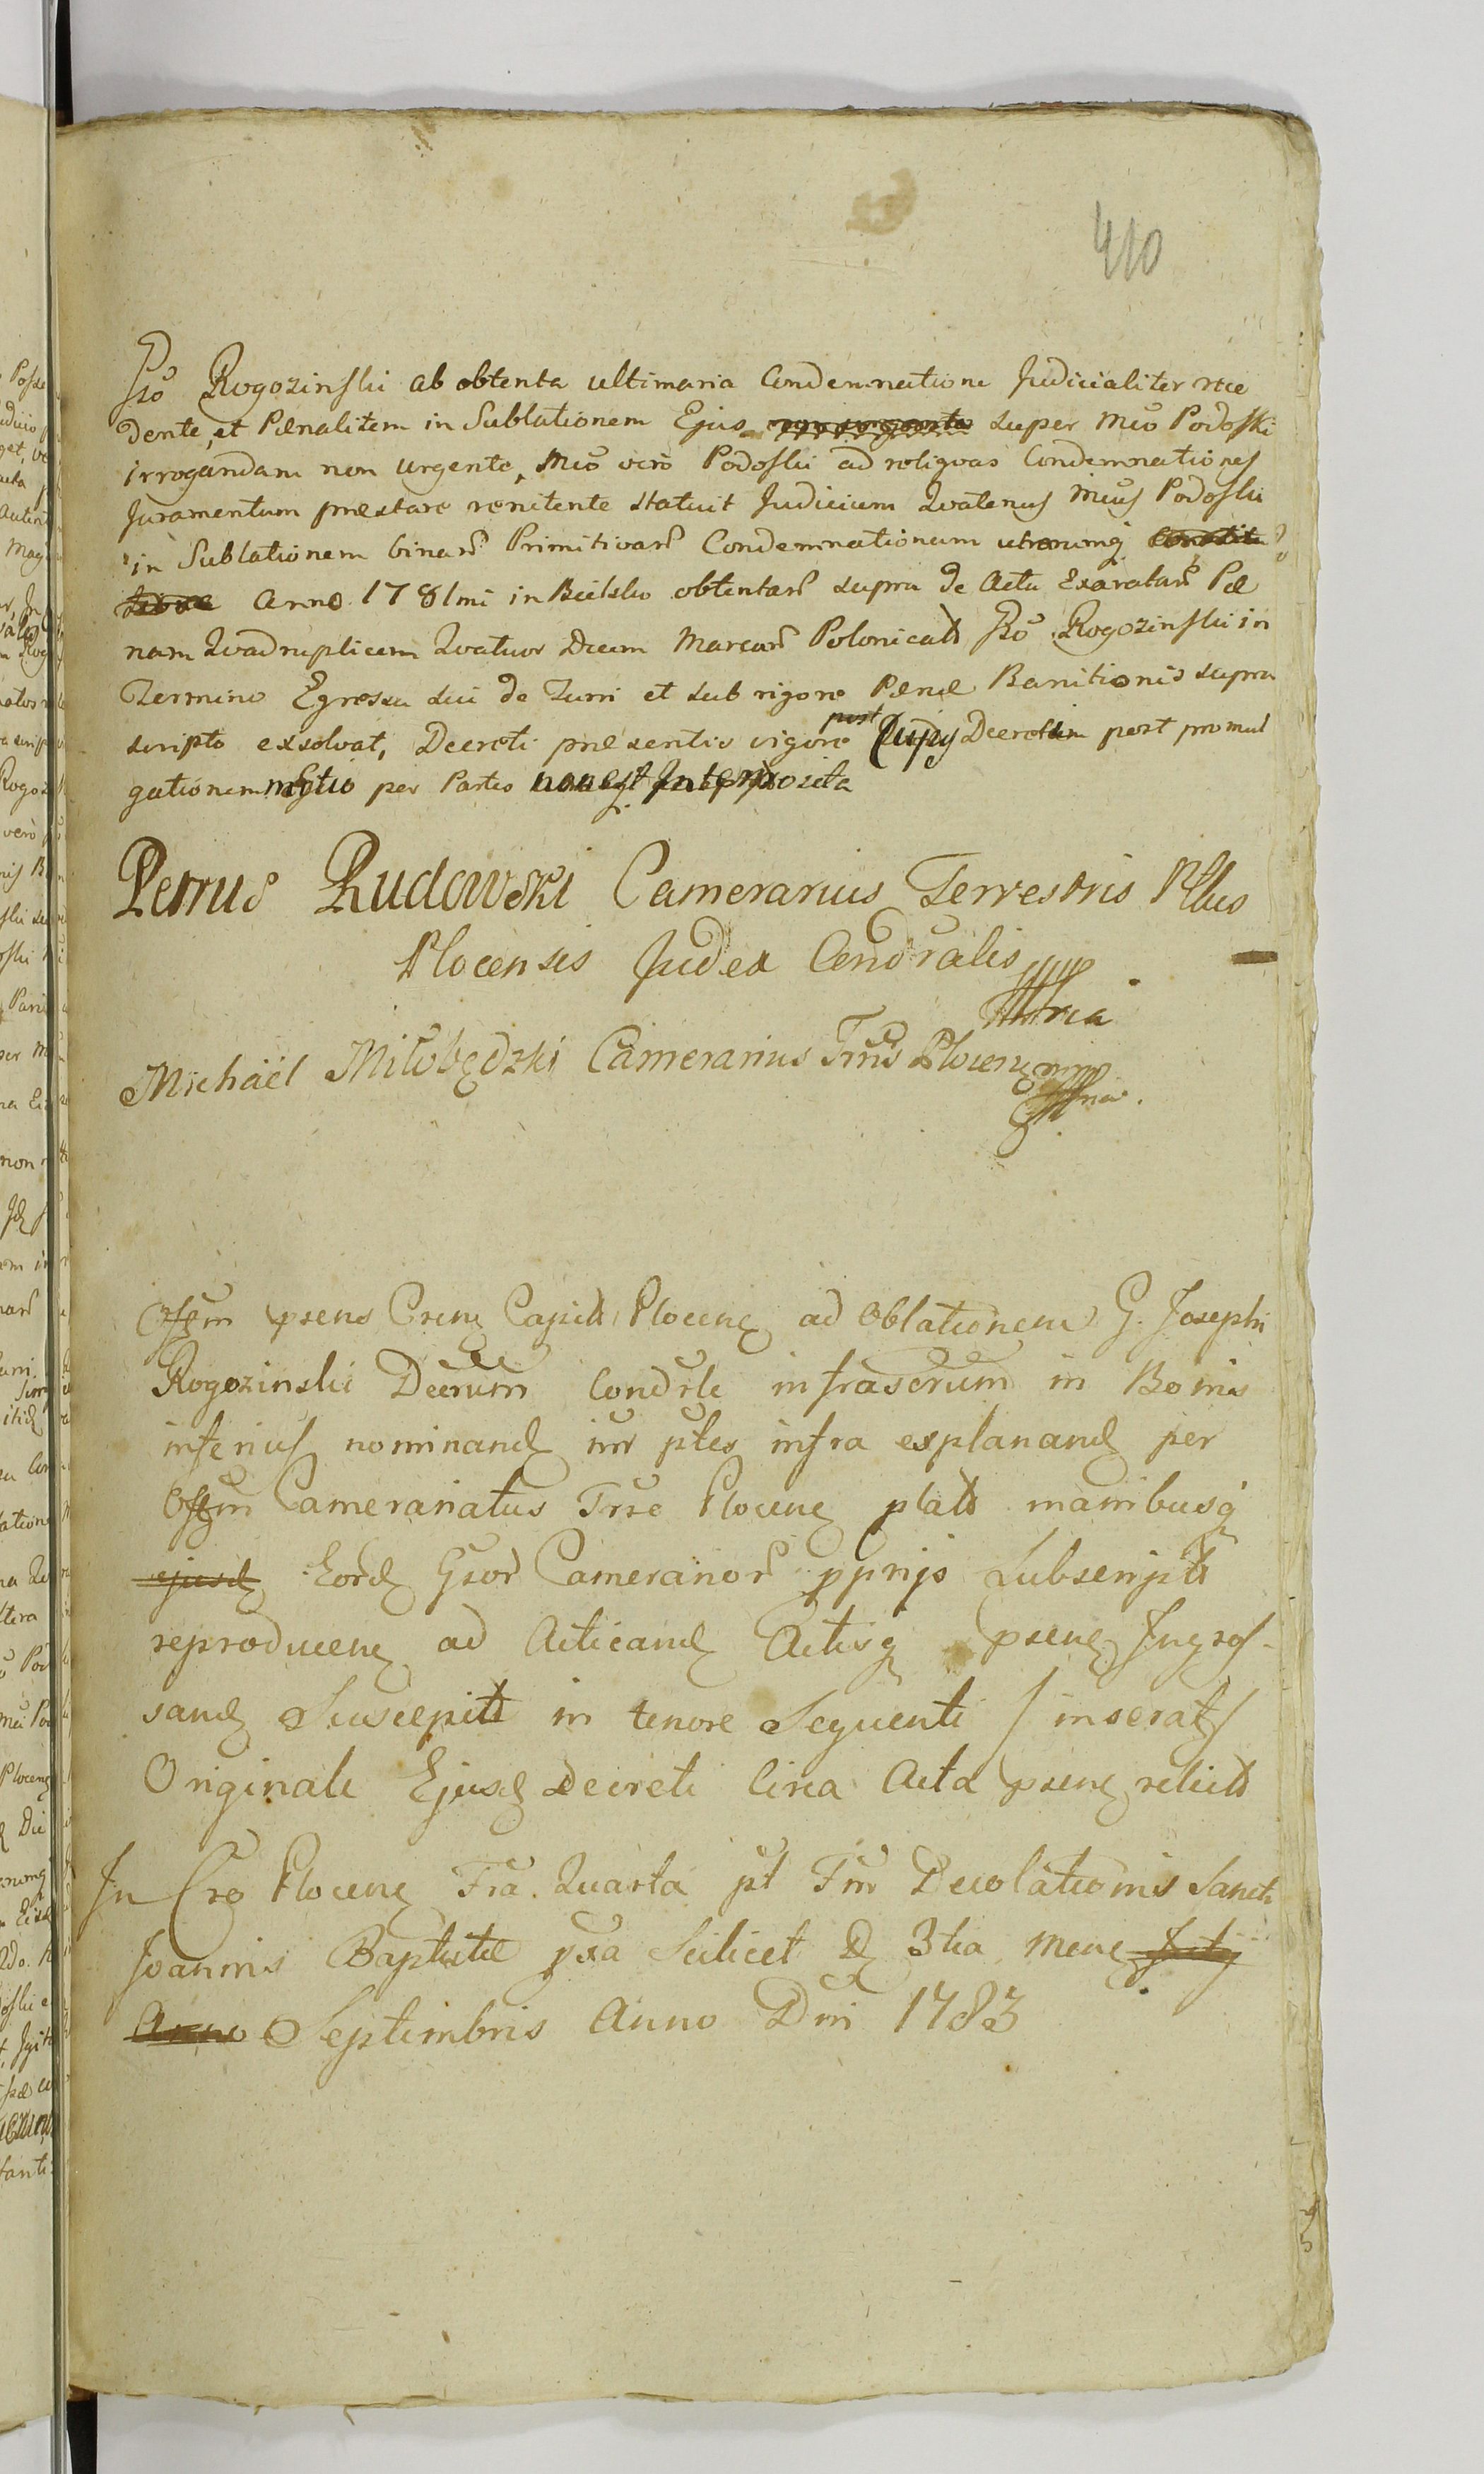 410
Gso Rogozinski ab obtenta ultimaria Condemnatione Judicialiter rece
dente, et Pænalitem in Sublationem Ejus super Mco Podoski
irrogandam non urgente, Mco vero Podoski ad reliqvas Condemnationes
Juramentum præstare renitente statuit Judicium Qvatenus Mcus Podoski
in Sublationem binarũ Primitivarũ Condemnationum utrarumq
Anno 1781mi in Bielsko obtentarũ supra de Actu Exaratarũ Pæ
nam Qvadruplicem Qvatuor Decem Marcarũ Polonicalũ Gso Rogozinski in
Termino Egressu sui de Turri et sub rigore Pænæ Banitionis supra
scripto exsolvat, Decreti præsentis vigore
post Cujus Decreti post promul
gationem Motio per Partes non est Interposita
Petrus Rudowski Camerarius Terrestris Pllus
Plocensis Judex Condralis
mpria
Michaël Miłobędzki Camerarius Trris Plocen mp
mpria.
Offm psens Crens Capit Plocens ad Oblationem G. Josephi
Rogozinski Decrum Condrle infrascrum in Bonis
inferius nominand inr ptes infra explanand per
Offm Camerariatus Trre Plocens plat manibusq
ejusd Eord Gsor Camerariorũ pprijs Subscript
reproducens ad Acticand Actisq psens Ingros-
sand Suscepit in tenore Sequenti / inserat /
Originale Ejusd Decreti Circa Acta psens relict
In Cro Plocens Fra Quarta pt Fm Decolationis Sancti
Joannis Baptistæ pxa Scilicet D 3tia Mens July
Anno Septimbris Anno Dni 1783